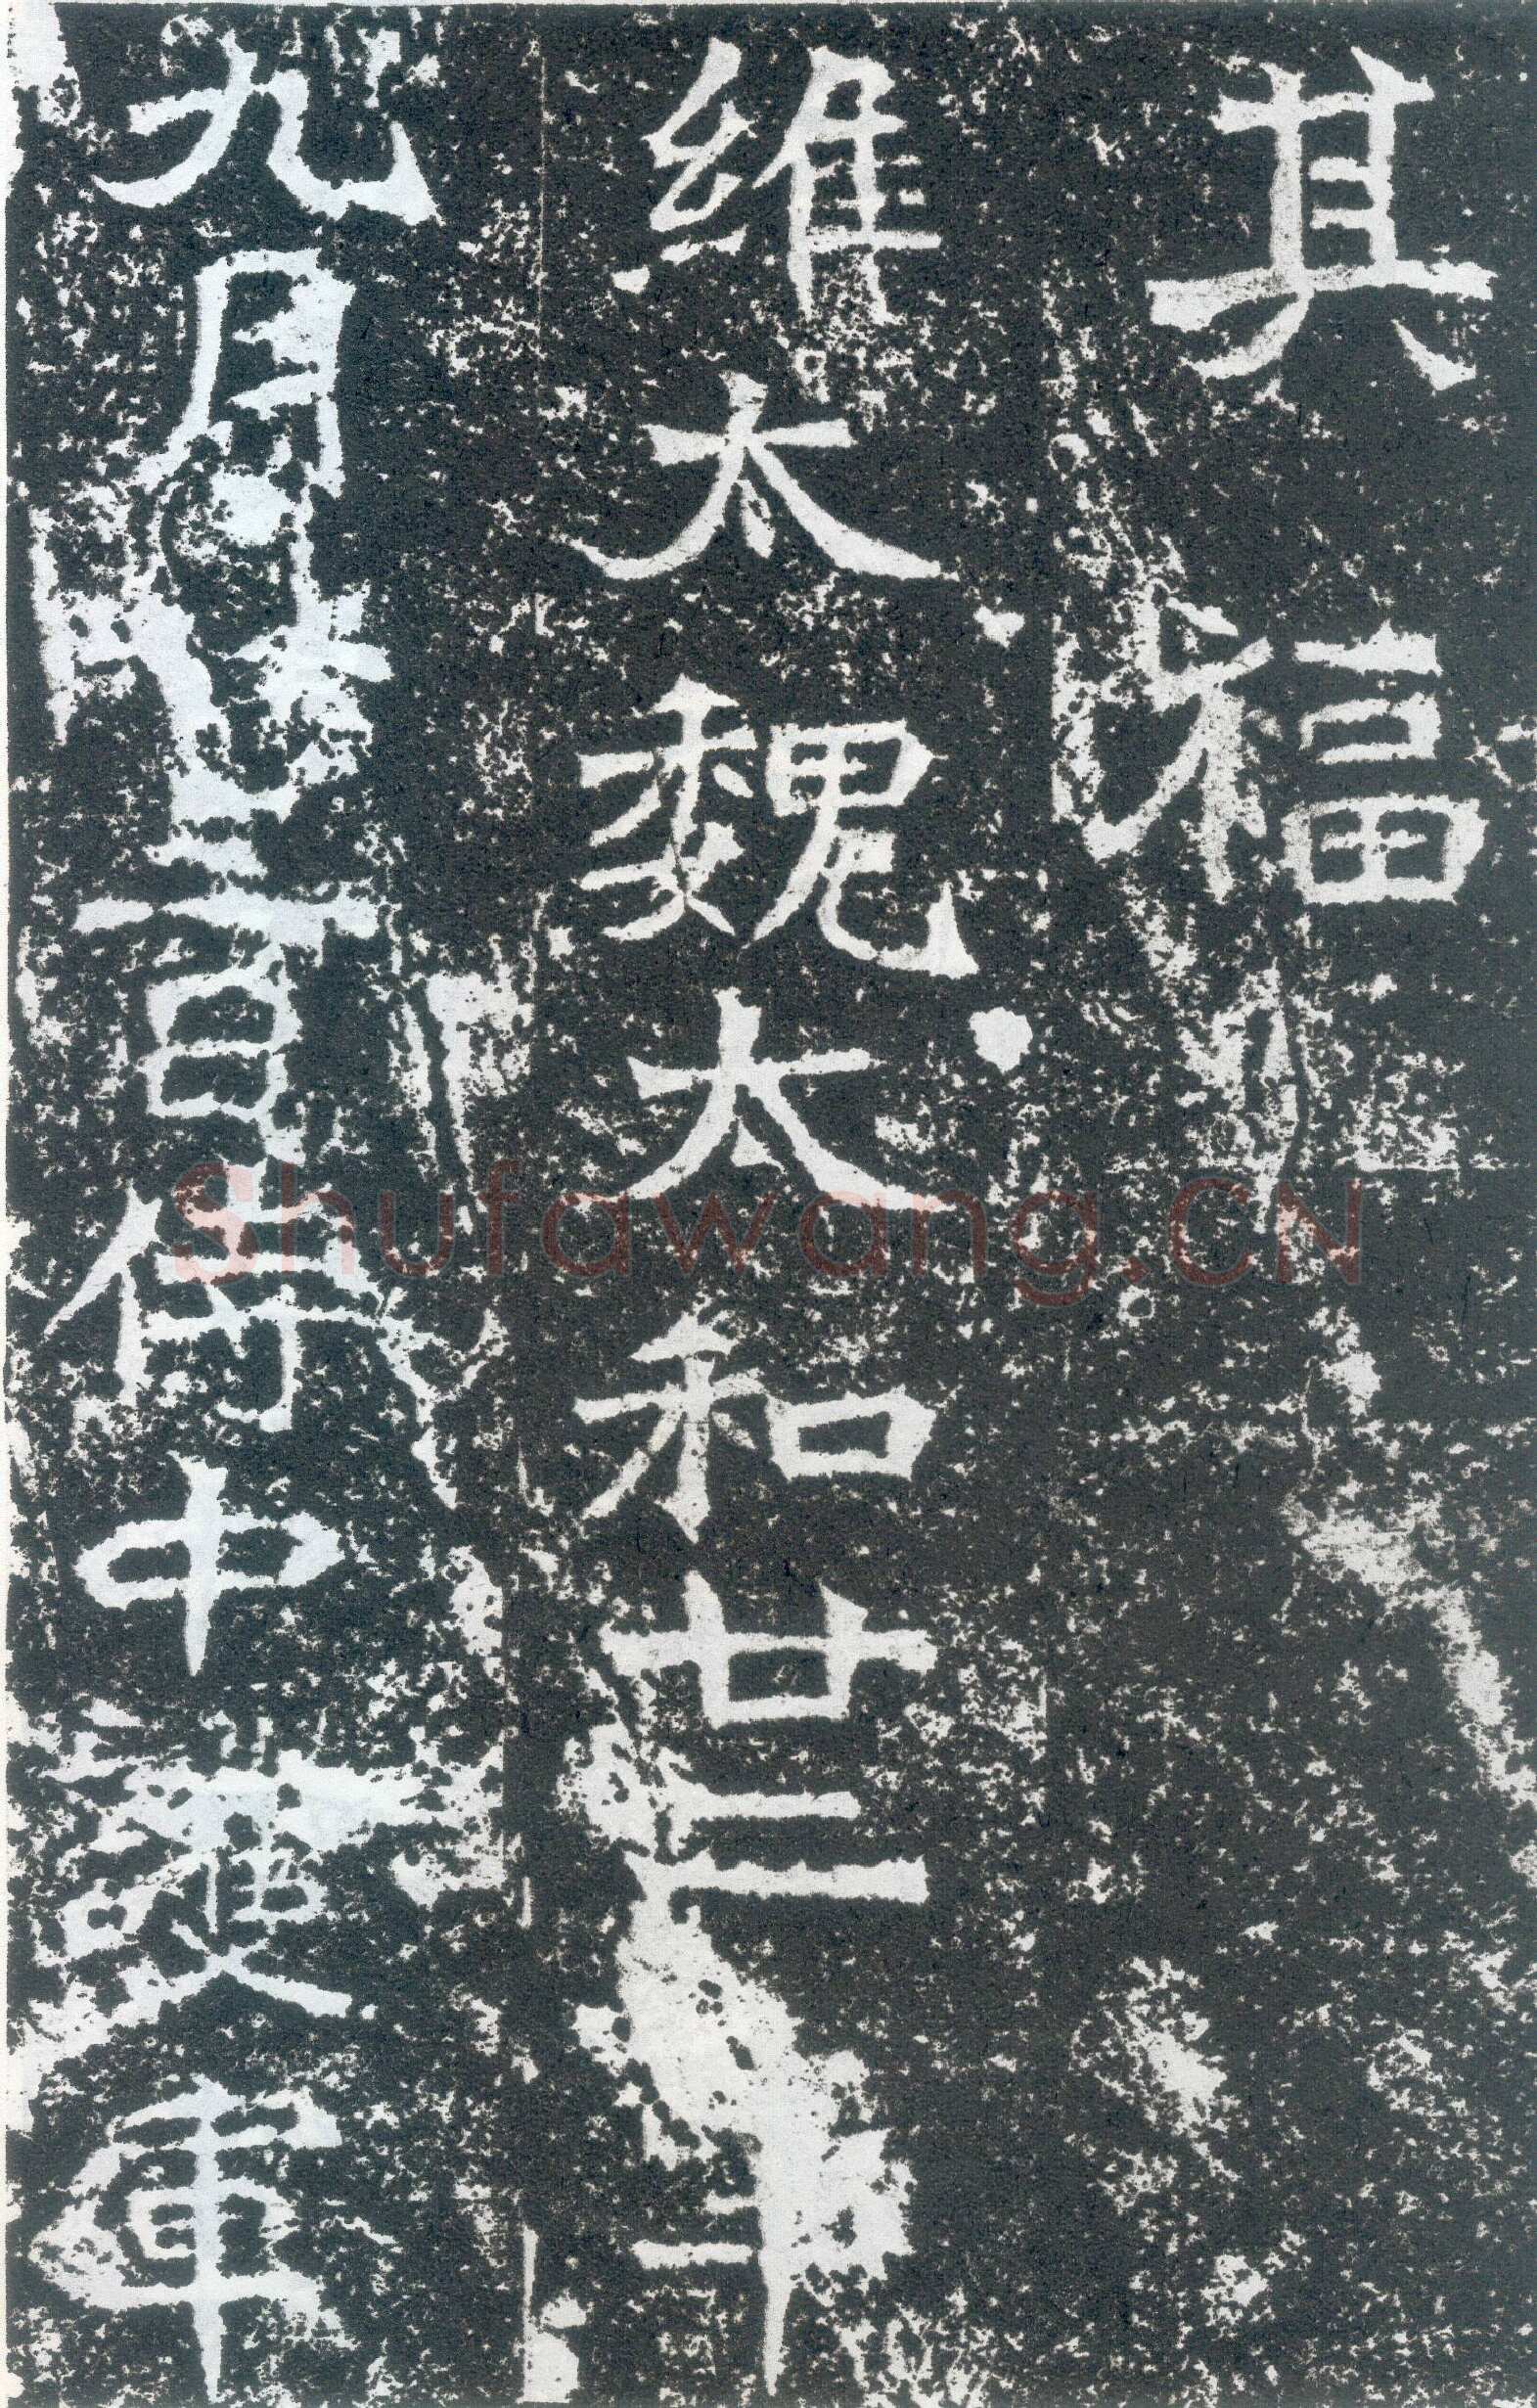 其福
維太魏太和廿二年
九月十四日侍中護軍
Shufawang.CN